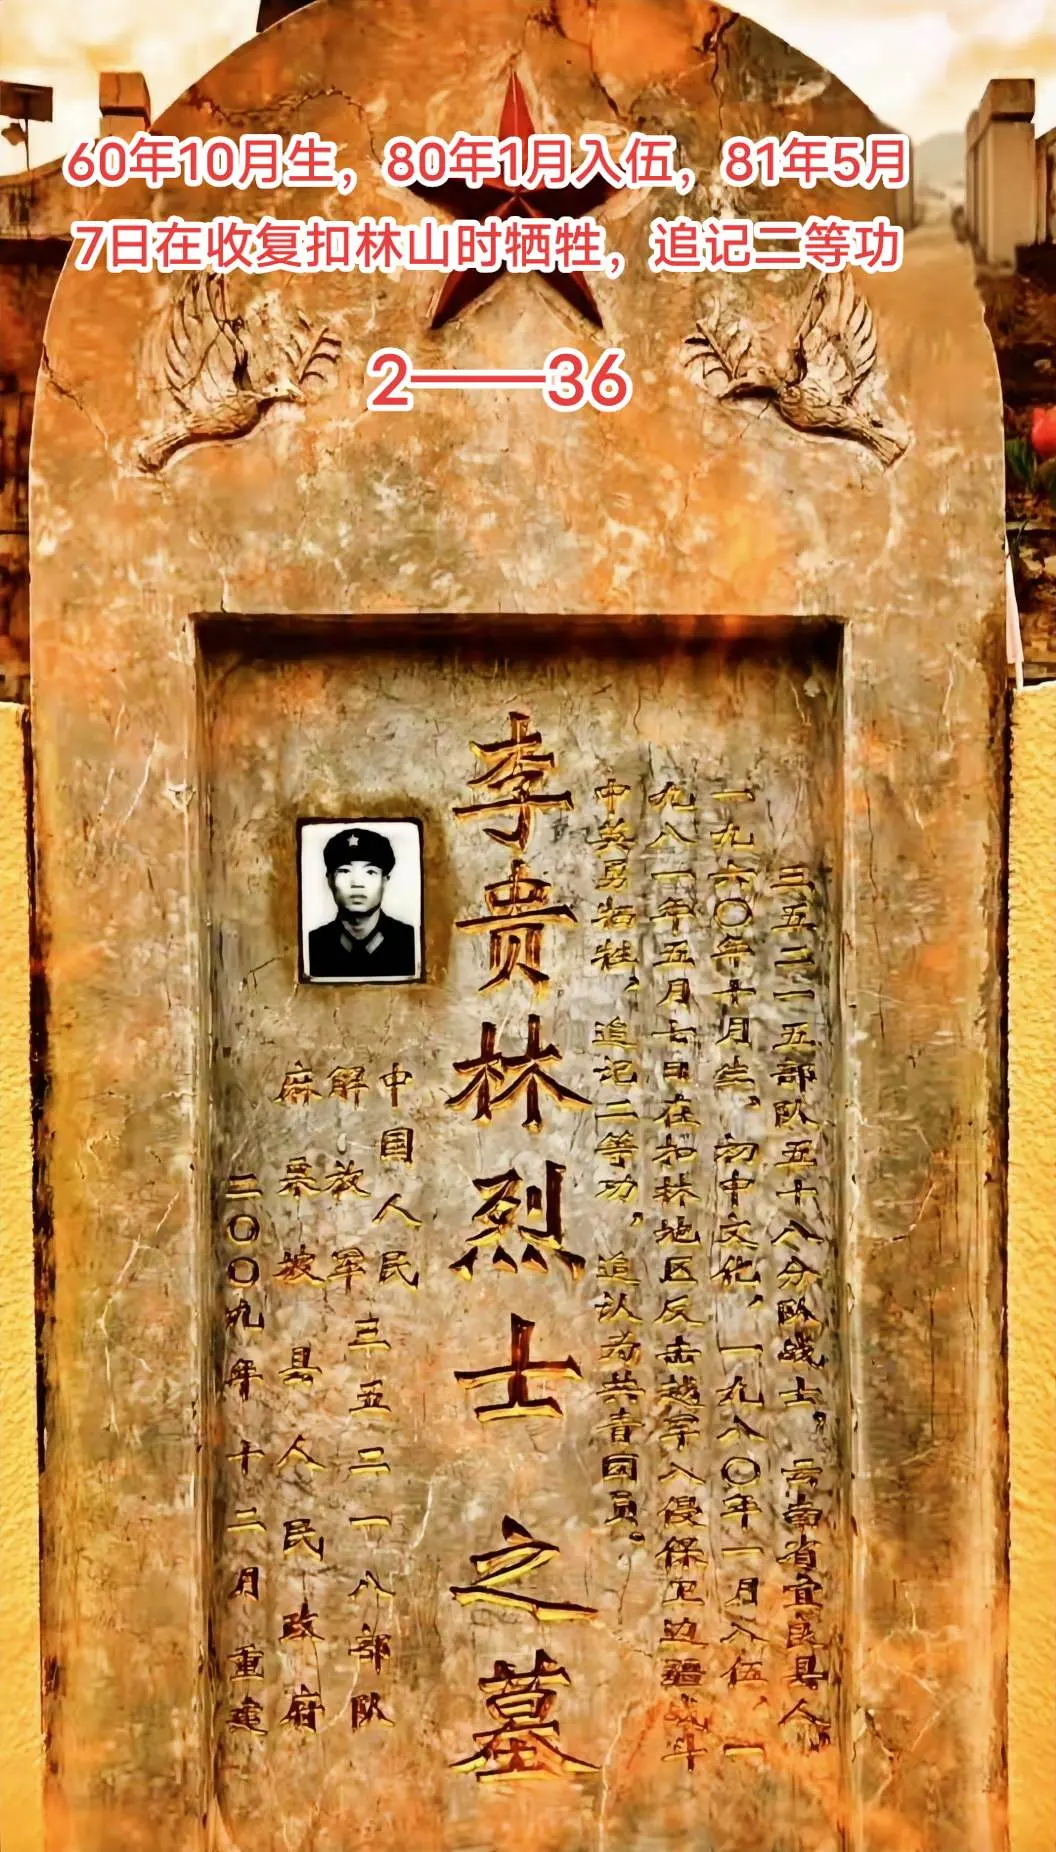 60年10月生，80年1月入伍，81年5月
7日在收复扣林山时牺牲，追记二等功
2——36
三五二一五部队五十八分队战士。云南省宜良县人，
一九六〇年十月生，初中文化，一九八〇年一月入伍，一
九八一年五月七日在扣林地区反击越军入侵保卫边疆战斗
中英勇牺牲，追记二等功，追认为共青团员。
李贵林烈士之墓
中国人民
解放军三五二一八部队
麻栗坡县人民政府
二〇〇九年十二月重建